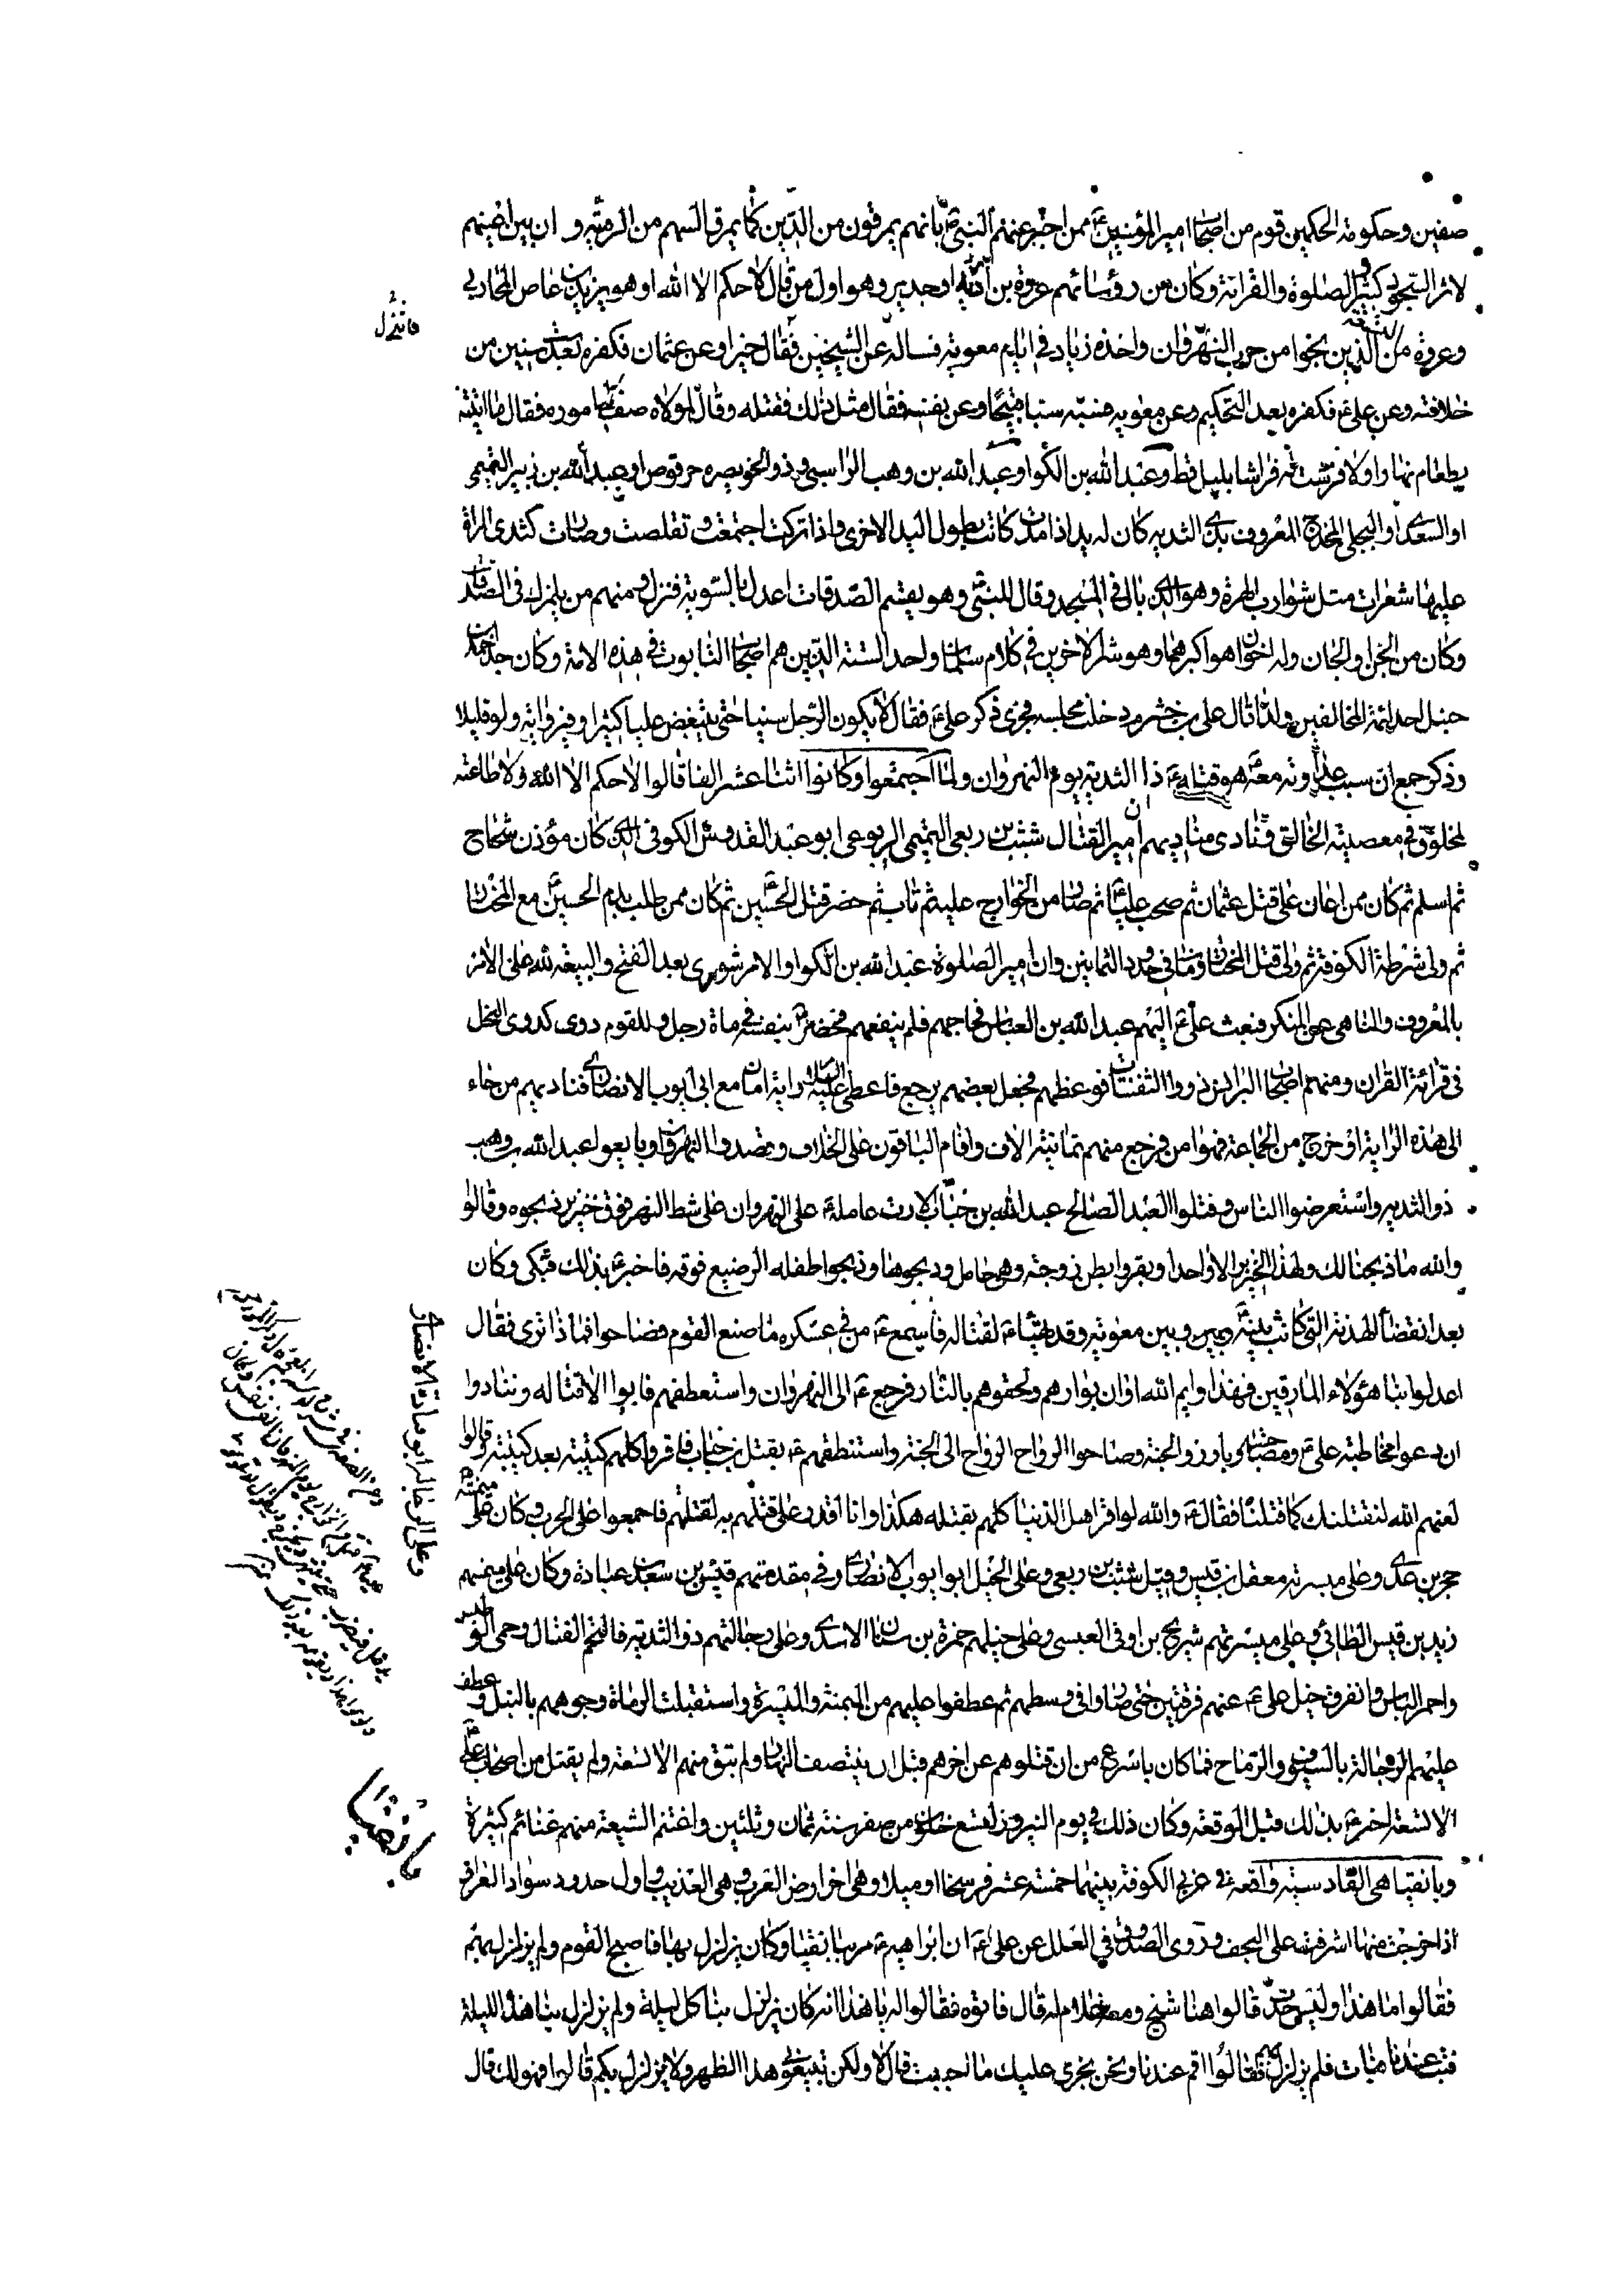 صفين وحكومة الحكمين قوم من اصحاب امير المؤمنين ع ممن اخبر عنهم النبي ص بانهم يمرقون من الدين كما يمرق السهم من الرمية و ان بين اعينهم
لاثر السجود كثير الصلوة والقرائة وكان من رؤسائهم عروة بن ادية او جدير وهو اول من قال لا حكم الا الله او هو يزيد بن عاص المحاربي
وعروة من التسعة الذين نجوا من حرب النهروان واخذه زياد في ايام معوية فساله عن الشيخين فقال خيرا وعن عثمان فكفره بعد ست سنين من
خلافته وعن علي ع فكفره بعد التحكيم وعن معوية فسبه سبا قبيحا وعن نفسه فقال مثل ذلك فقتله وقال لمولاه صف لنا اموره فقال ما اتيته
بطعام نهارا ولا فرشت له فراشا بليل قط وعبد الله بن الكوا وعبد الله بن وهب الراسبي وذو الخويصرة حرقوص او عبد الله بن زبير التميمي
او السعدي او البجلي المخدج المعروف بذي الثدية كان له يد اذا مدت كانت بطول اليد الاخرى واذا تركت اجتمعت وتقلصت وصارت كثدي المراة
عليها شعرات مثل شوارب الهرة وهو الذي بال في المسجد وقال للنبي وهو يقسم الصدقات اعدل بالسوية فنزل ومنهم من يلمزك في الصدقات
وكان من الجن او الجان وله اخوان هو اكبرهما وهو شر الاخرين في كلام سلمان واحد الستة الذين هم اصحاب التابوت في هذه الامة وكان جد احمد بن
حنبل احد ائمة المخالفين ولذا قال علي بن خشرم دخلت مجلسه فجرى ذكر علي ع فقال لا يكون الرجل سنيا حتى يتبغض عليا كثيرا وفي رواية ولو قليلا
وذكر جمع ان سبب عداوته معه هو قتله ع ذا الثدية يوم النهروان ولما اجتمعوا وكانوا اثنا عشر الفا قالوا لا حكم الا الله ولا طاعة
لمخلوق في معصية الخالق فنادى مناديهم ان امير القتال شبث بن ربعي التميمي اليربوعي ابو عبد القدوس الكوفي الذي كان مؤذن سجاح
ثم اسلم ثم كان ممن اعان على قتل عثمان ثم صحب عليا ع ثم صار من الخوارج عليه ثم تاب ثم حضر قتل الحسين ع ثم كان ممن طلب بدم الحسين ع مع المختار
ثم ولى شرطة الكوفة ثم ولى قتل المختار ومات في حدود الثمانين وان امير الصلوة عبد الله بن الكوا والامر شورى بعد الفتح والبيعة لله على الامر
بالمعروف والناهي عن المنكر فبعث علي ع اليهم عبد الله بن العباس فحاجهم فلم ينفعهم فحضر ع بنفسه في ماة رجل وللقوم دوى كدوى النحل
في قرائة القران ومنهم اصحاب البرانس ذووا الثفنات فوعظهم فجعل بعضهم يرجع فاعطى عليه السلام راية امان مع ابي ايوب الانصاري فناديهم من جاء
الى هذه الراية او خرج من الجماعة فهو امن فرجع منهم ثمانية الاف واقام الباقون على الخلاف وقصدوا النهروان وبايعوا عبد الله بن وهب
ذو الثدية واستعرضوا الناس وقتلوا العبد الصالح عبد الله بن خباب الارت عامله ع على النهروان على شط النهر فوق خنزير ذبحوه وقالوا
والله ما ذبحنا لك ولهذا الخنزير الا واحدا وبقروا بطن زوجته وهي حامل وذبحوها وذبحوا طفله الرضيع فوقه فاخبر ع بذلك فبكى وكان
بعد انقضاء الهدنة التي كانت بينه وبين معوية وقد تهيا ع لقتاله فاسمع ع من في عسكره ما صنع القوم فصاحوا فما ذا ترى فقال
اعدلوا بنا هؤلاء المارقين فهذا وايم الله اوان بوارهم ولحقوهم بالنار فرجع ع الى النهروان واستعطفهم فابوا الا قتاله وتنادوا
ان دعوا مخاطبة علي ع واصحابه وبارزوا الجنة وصاحوا الرواح الرواح الى الجنة واستنطقهم ع بقتل بن خباب فاقروا كلهم كتيبة بعد كتيبة وقالوا
لعنهم الله لنقتلنك كما قتلنا فقال ع والله لو اقر اهل الدنيا كلهم بقتله هكذا وانا اقدر على قتلهم به لقتلتهم فاجمعوا على الحرب وكان على ميمنته
حجر بن عدي وعلى ميسرته معقل بن قيس وقيل شبث بن ربعي وعلى الخيل ابو ايوب الانصاري وفي مقدمتهم قيس بن سعد بن عبادة وكان على ميمنتهم
زيد بن قيس الطائي وعلى ميسرتهم شريح بن اوفى العبسي وعلى خيلهم حمزة بن سنان الاسدي وعلى رجالتهم ذو الثدية فالتحم القتال وحمى الوطيس
واحمر الباس وانفرق خيل علي ع عنهم فرقتين حتى صاروا في وسطهم ثم عطفوا عليهم من الميمنة والميسرة واستقبلت الرماة وجوههم بالنبل وعطف
عليهم الرجالة بالسيوف والرماح فما كان باسرع من ان قتلوهم عن اخرهم قبل ان ينتصف النهار ولم يبق منهم الا تسعة ولم يقتل من اصحاب علي ع
الا تسعة اخبر ع بذلك قبل الوقعة وكان ذلك في يوم النيروز لتسع خلون من صفر سنة ثمان وثلثين واغتنم الشيعة منهم غنائم كثيرة
وبانقيا هي القادسية واقعة في غربي الكوفة بينهما خمسة عشر فرسخا او ميلا وهي اخر ارض العرب وهي العذيب واول حدود سواد العراق
اذا خرجت منها اشرفت على النجف وروى الصدوق في العلل عن علي ع ان ابراهيم ع مر ببانقيا وكان يزلزل بها فاصبح القوم ولم يزلزل بهم
فقالوا ما هذا وليس حدث قالوا هنا شيخ ومعه غلام له قال فاتوه فقالوا له يا هذا انه كان يزلزل بنا كل ليلة ولم يزلزل بنا هذه الليلة
فبت عندنا فبات فلم يزلزل بهم فقالوا اقم عندنا ونحن نجري عليك ما احببت قال لا ولكن تبيعوني هذا الظهر ولا يزلزل بكم قالوا فهو لك قال
وعلى الرجالة ابو قتادة الانصاري
بانقيا